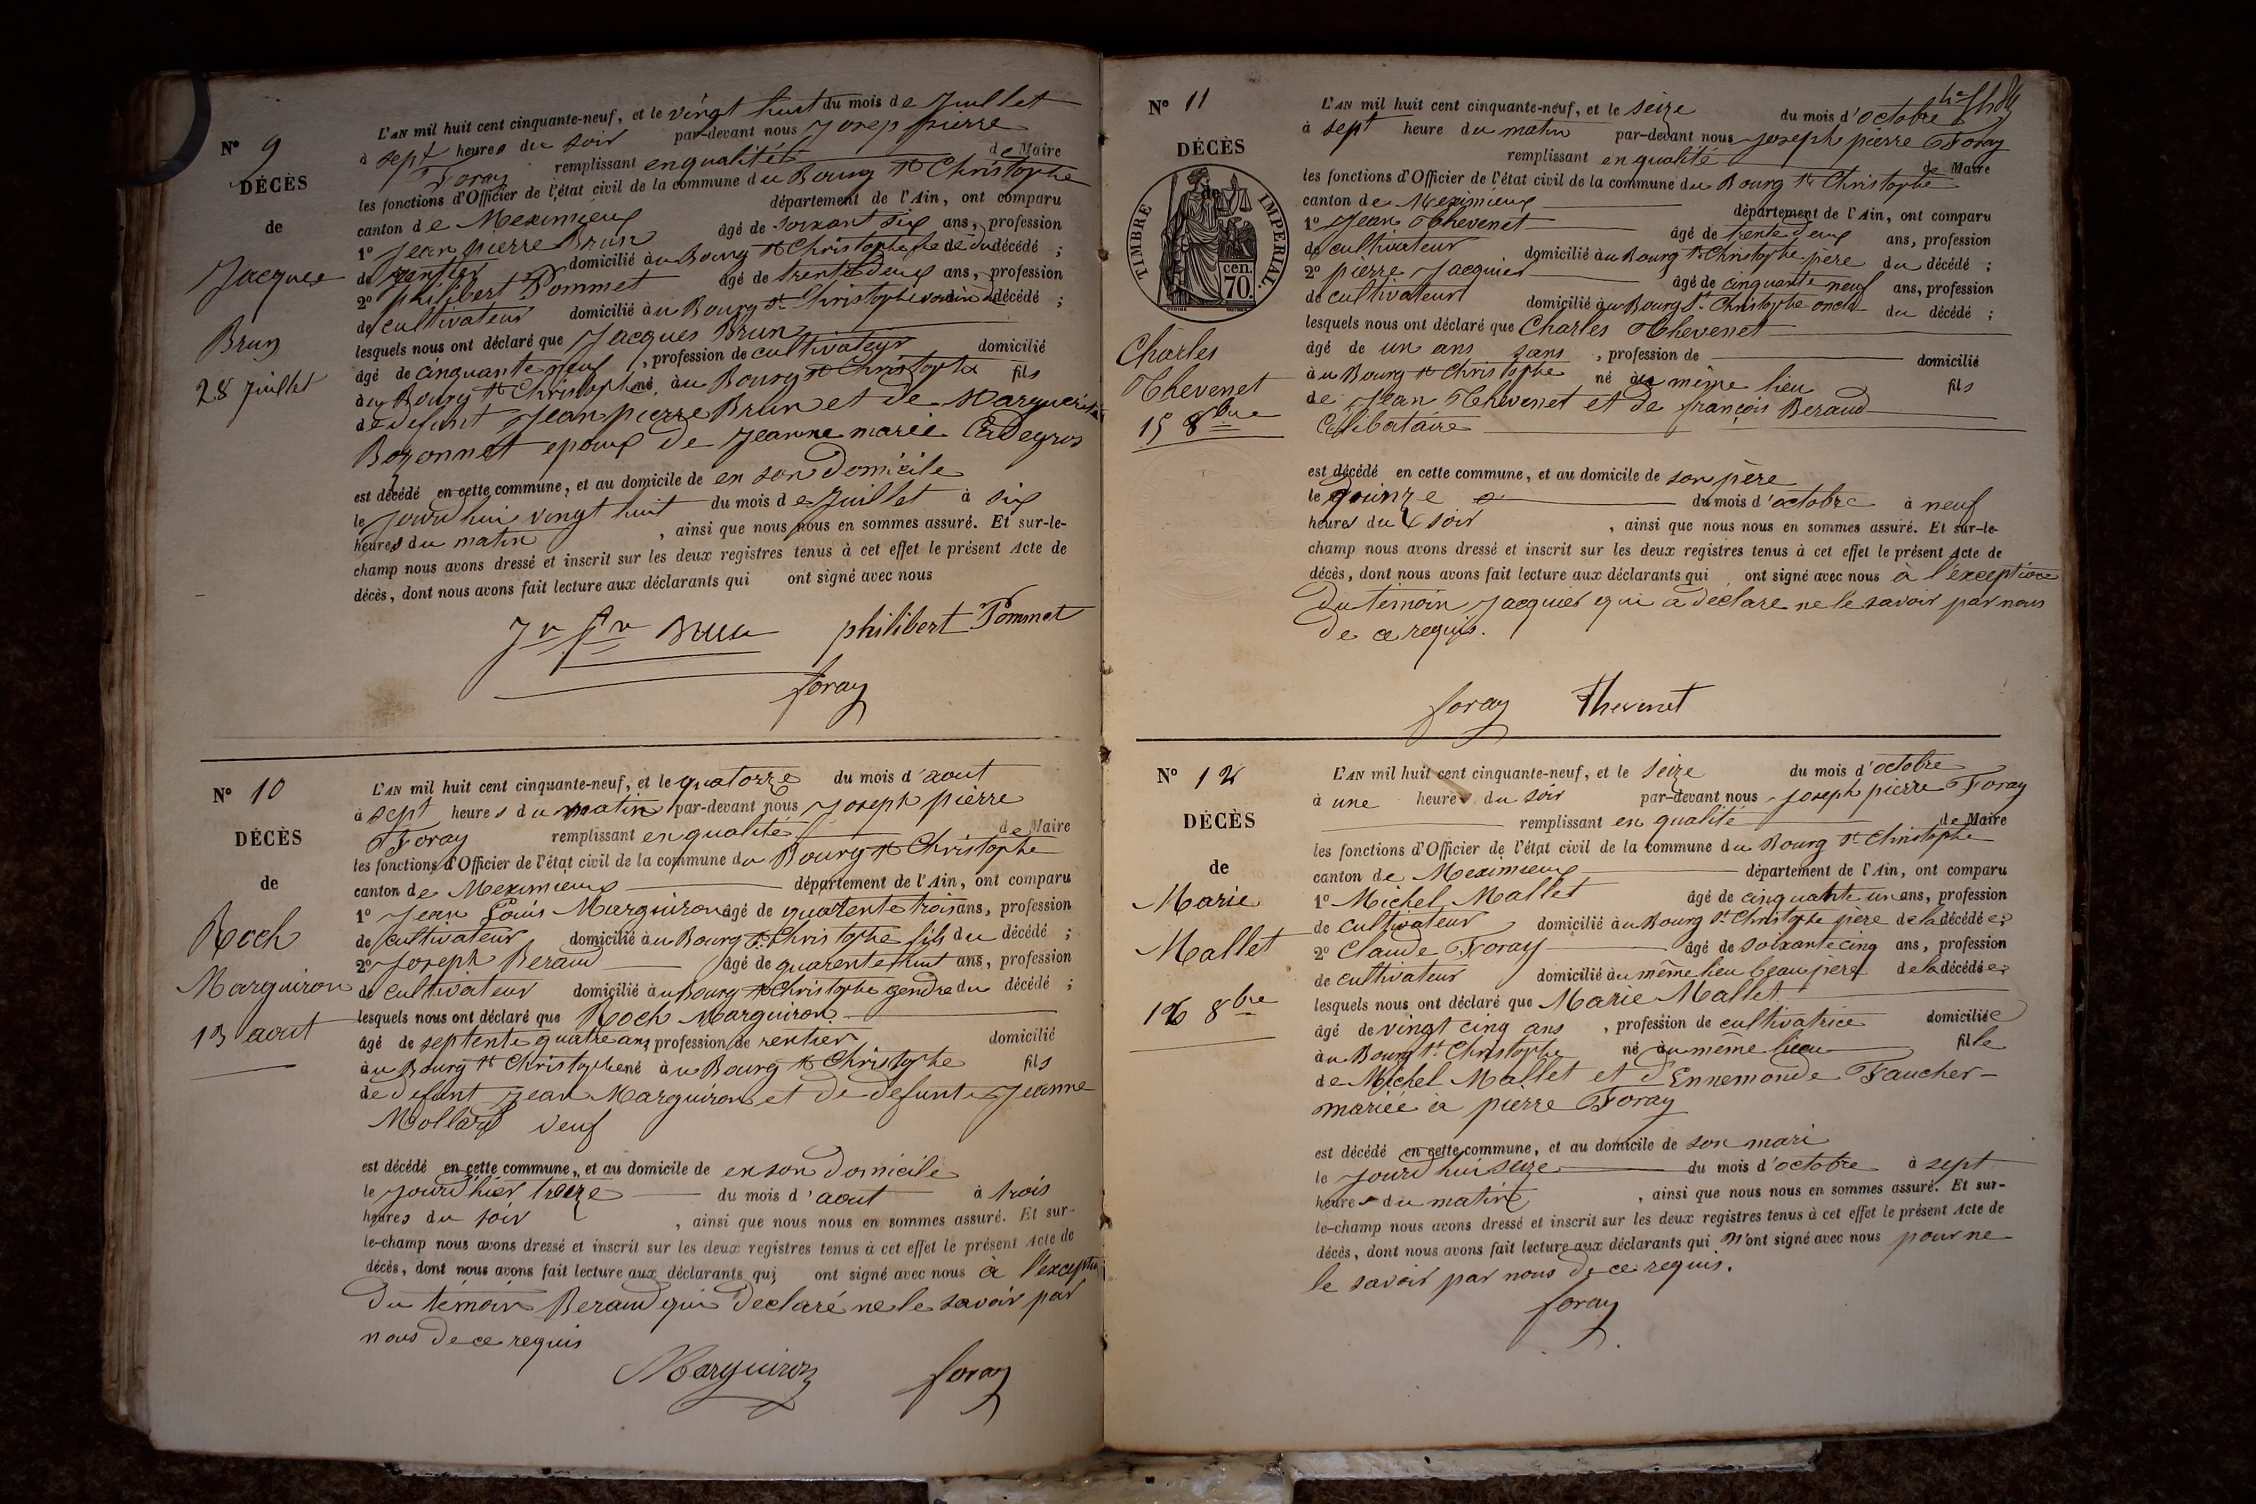 N° 9
DÉCÈS
de
Jacques
Brun
28 Juillet
L'AN mil huit cent cinquante-neuf, et le vingt huit du mois de Juillet
à sept heures du soir par-devant nous Josep pierre
Foray remplissant en qualité de Maire
les fonctions d'Officier de l'état civil de la commune du Bourg St Christophe
canton de Meximieux département de l'Ain, ont comparu
1° Jean pierre Brun âgé de soixant six ans, profession
de rentier domicilié au Bourg St Christophe du décédé ;
2° philibert Pommet âgé de trente deux ans, profession
de cultivateur domicilié au Bourg St Christophe voisin du décédé ;
lesquels nous ont déclaré que Jacques Brun
âgé de cinquante neuf , profession de cultivateur domicilié
au Bourg St Christophe né au Bourg St Christophe fils
de defunt Jean pierre Brun et de Marguerite
Bozonnet epoux de Jeanne marie
est décédé en cette commune, et au domicile de en son domicile
le jourd'hui vingt huit du mois de Juillet à six
heures du matin , ainsi que nous nous en sommes assuré. Et sur-le-
champ nous avons dressé et inscrit sur les deux registres tenus à cet effet le présent Acte de
décès, dont nous avons fait lecture aux déclarants qui ont signé avec nous
Jn Pre Brun philibert Pommet
foray
N° 10
DÉCÈS
de
Roch
Marguiron
13 aout
L'AN mil huit cent cinquante-neuf, et le quatorze du mois d'aout
à sept heures du matin par-devant nous Joseph pierre
Foray remplissant en qualité de Maire
les fonctions d'Officier de l'état civil de la commune du Bourg St Christophe
canton de Meximieux département de l'Ain, ont comparu
1° Jean Louis Marguiron âgé de quarente trois ans, profession
de cultivateur domicilié au Bourg St Christophe fils du décédé ;
2° Joseph Beraud âgé de quarente huit ans, profession
de cultivateur domicilié au Bourg St Christophe gendre du décédé ;
lesquels nous ont déclaré que Roch Marguiron
âgé de septente quatre ans, profession de rentier domicilié
au Bourg St Christophe né au Bourg St Christophe fils
de defunt Jean Marguiron et de defunte Jeanne
Mollard veuf
est décédé en cette commune, et au domicile de en son domicile
le jourd'hier treize du mois d'aout à trois
heures du soir , ainsi que nous nous en sommes assuré. Et sur-
le-champ nous avons dressé et inscrit sur les deux registres tenus à cet effet le présent Acte de
décès, dont nous avons fait lecture aux déclarants qui ont signé avec nous à l'exception
du témoin Beraud qui declaré ne le savoir par
nous de ce requis
Marguiron foray
N° 11
DÉCÈS
de
TIMBRE IMPERIAL
cen.
70.
Charles
Thevenet
15 8bre
L'AN mil huit cent cinquante-neuf, et le seize du mois d'octobre
à sept heure du matin par-devant nous Joseph pierre Foray
remplissant en qualité de Maire
les fonctions d'Officier de l'état civil de la commune du Bourg St Christophe
canton de Meximieux département de l'Ain, ont comparu
1° Jean Thevenet âgé de trente deux ans, profession
de cultivateur domicilié au Bourg St Christophe père du décédé ;
2° pierre Jacquier âgé de cinquante neuf ans, profession
de cultivateur domicilié au Bourg St Christophe oncle du décédé ;
lesquels nous ont déclaré que Charles Thevenet
âgé de un ans sans , profession de domicilié
au Bourg St Christophe né au même lieu fils
de Jean Thevenet et de françois Beraud
Célibataire
est décédé en cette commune, et au domicile de son père
le quinze du mois d'octobre à neuf
heures du soir , ainsi que nous nous en sommes assuré. Et sur-le-
champ nous avons dressé et inscrit sur les deux registres tenus à cet effet le présent Acte de
décès, dont nous avons fait lecture aux déclarants qui ont signé avec nous à l'exception
du temoin Jacquier qui a declare ne le savoir par nous
de ce requis.
foray Thevenet
N° 12
DÉCÈS
de
Marie
Mallet
16 8bre
L'AN mil huit cent cinquante-neuf, et le seize du mois d'octobre
à une heure du soir par-devant nous Joseph pierre Foray
remplissant en qualité de Maire
les fonctions d'Officier de l'état civil de la commune du Bourg St Christophe
canton de Meximieux département de l'Ain, ont comparu
1° Michel Mallet âgé de cinquante un ans, profession
de cultivateur domicilié au Bourg St Christophe père de la décédée ;
2° Claude Foray âgé de soixante cinq ans, profession
de cultivateur domicilié au même lieu beau père de la décédée ;
lesquels nous ont déclaré que Marie Mallet
âgé de vingt cinq ans , profession de cultivatrice domiciliée
au Bourg St Christophe né au même lieu fille
de Michel Mallet et d'Ennemonde Faucher
mariée à pierre Foray
est décédé en cette commune, et au domicile de son mari
le jourd'hui seize du mois d'octobre à sept
heures du matin , ainsi que nous nous en sommes assuré. Et sur-
le-champ nous avons dressé et inscrit sur les deux registres tenus à cet effet le présent Acte de
décès, dont nous avons fait lecture aux déclarants qui n'ont signé avec nous pour ne
le savoir par nous de ce requis.
foray